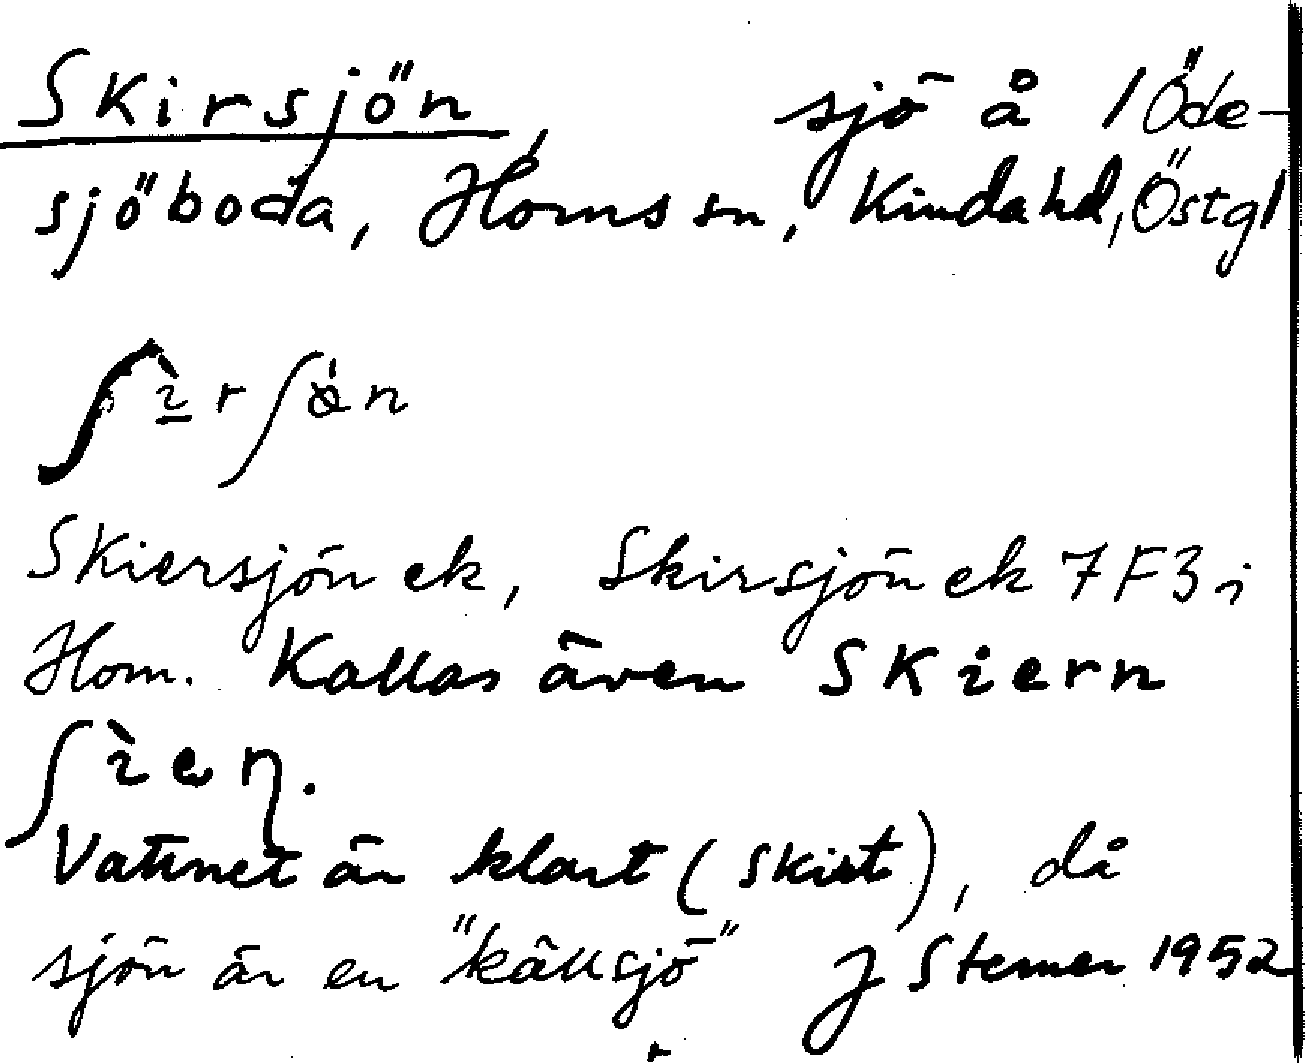 Skirsjön, sjö å 1 Öde-
sjöboda, Horns sn, Kinda hd, Östgl
ʃì̱rʃø̀n
Skiersjön ek, Skirsjön ek 7F3 i
Horn. Kallas även Skiern
ʃìeɳ.
Vattnet är klart (skirt), då
sjön är en "källsjö" J Sterner 1952